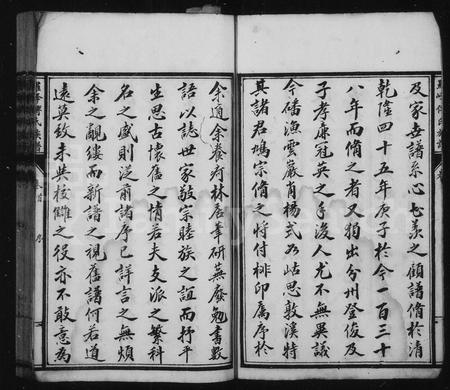 及家世譜系心尤羨之顧譜脩於清
乾隆四十五年庚子於今一百三十
八年而脩之者又獨出分州登俊及
子孝廉冠英之手後人尤無異議
今磻漁雲巖肖楊式為岵思敦溪特
其諸君鳩宗脩之將付梓印屬序於
余適余養疴林居筆研無廢勉書數
語以誌世家敬宗睦族之誼而抒平
生思古懷舊之情若夫支派之繁科
名之盛則泛前諸序已詳言之無煩
余之覼縷而新譜之視舊譜何若道
遠莫致未共校讎之役亦不敢意為
卷首 序